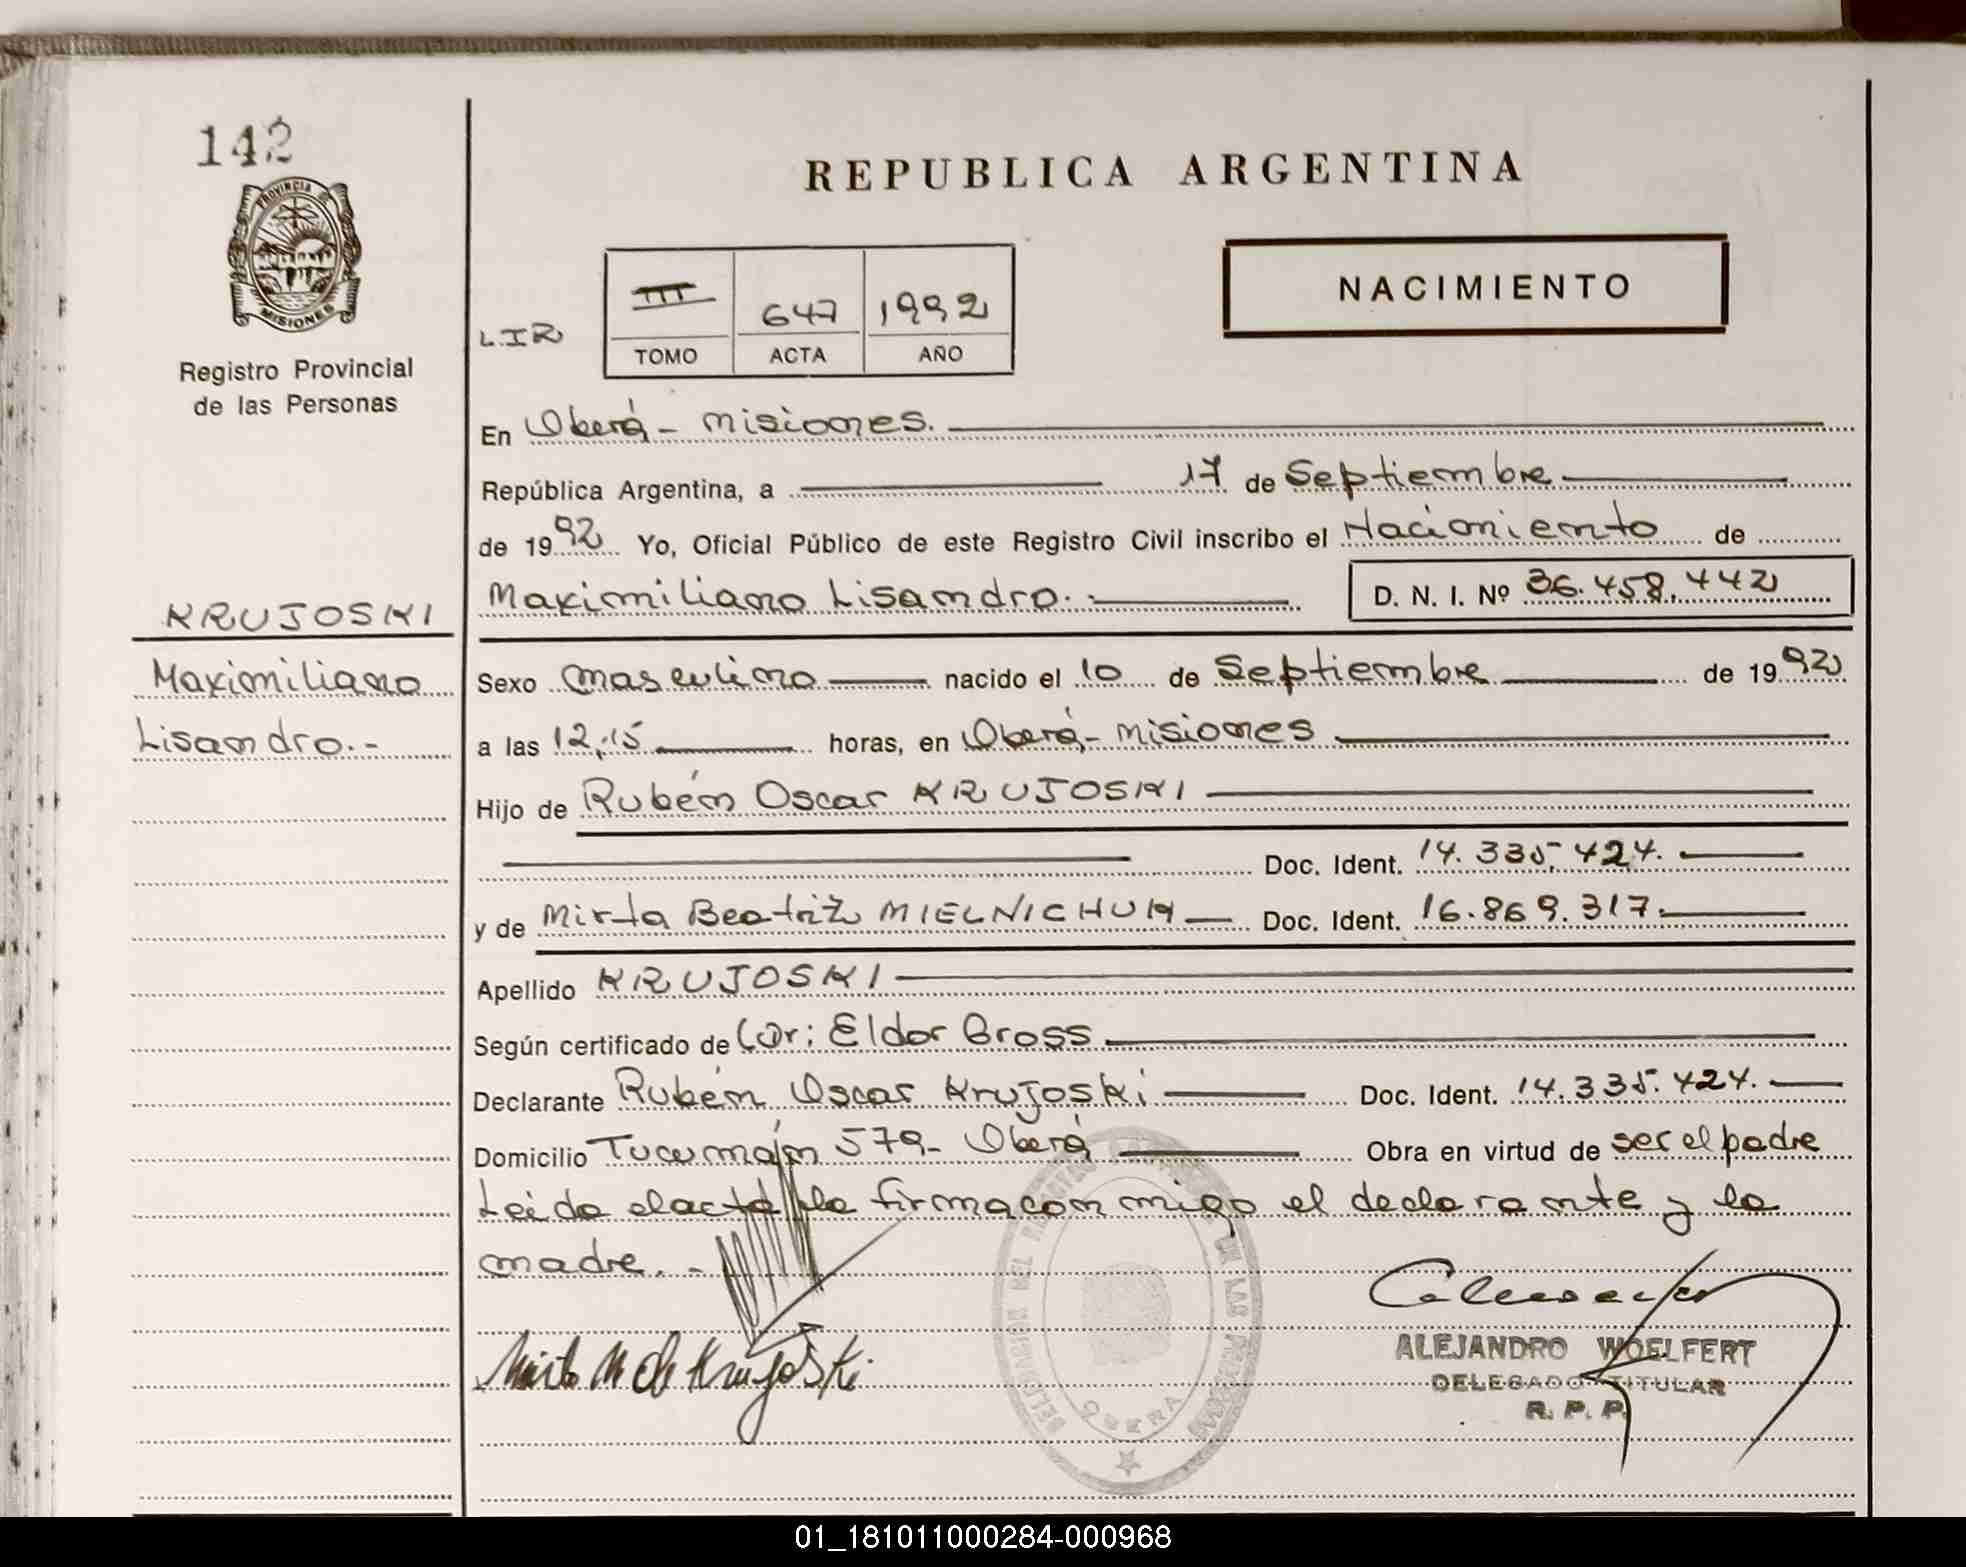 142
PROVINCIA
MISIONES
Registro Provincial
de las Personas
KRUJOSKI
Maximiliano
Lisandro.-
REPUBLICA ARGENTINA
NACIMIENTO
L.IR
III 647 1992
TOMO ACTA AÑO
En Oberá - Misiones.
República Argentina, a 17 de Septiembre
de 1992 Yo, Oficial Público de este Registro Civil inscribo el Nacimiento de
Maximiliano Lisandro.- D. N. I. Nº 36.458.442
Sexo masculino nacido el 10 de Septiembre de 1992
a las 12,15 horas, en Oberá - Misiones
Hijo de Rubén Oscar KRUJOSKI
Doc. Ident. 14.335.424.
y de Mirta Beatriz MIELNICHUK Doc. Ident. 16.869.317.
Apellido KRUJOSKI
Según certificado de Dr: Eldor Gross
Declarante Rubén Oscar Krujoski Doc. Ident. 14.335.424.
Domicilio Tucumán 579 - Oberá Obra en virtud de ser el padre
Leída el acta la firma con migo el declarante y la
madre. -
Mirta M de Krujoski
ALEJANDRO WOELFERT
DELEGADO TITULAR
R. P. P.
OBERA
01_181011000284-000968